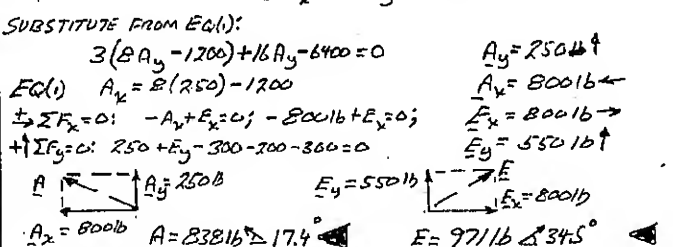 SUBSTITUTE FROM EQ(1):
3(8Ay-1200)+16Ay-6400=0 Ay=250lb↑
EQ(1) Ax=8(250)-1200 Ax=800lb←
+→ΣFx=0: -Ax+Ex=0; -800lb+Ex=0; Ex=800lb→
+↑ΣFy=0: 250+Ey-300-200-300=0 Ey=550lb↑
A Ay=250lb Ey=550lb E
Ex=800lb
Ax=800lb A=838lb 17.4° E=971lb 34.5°